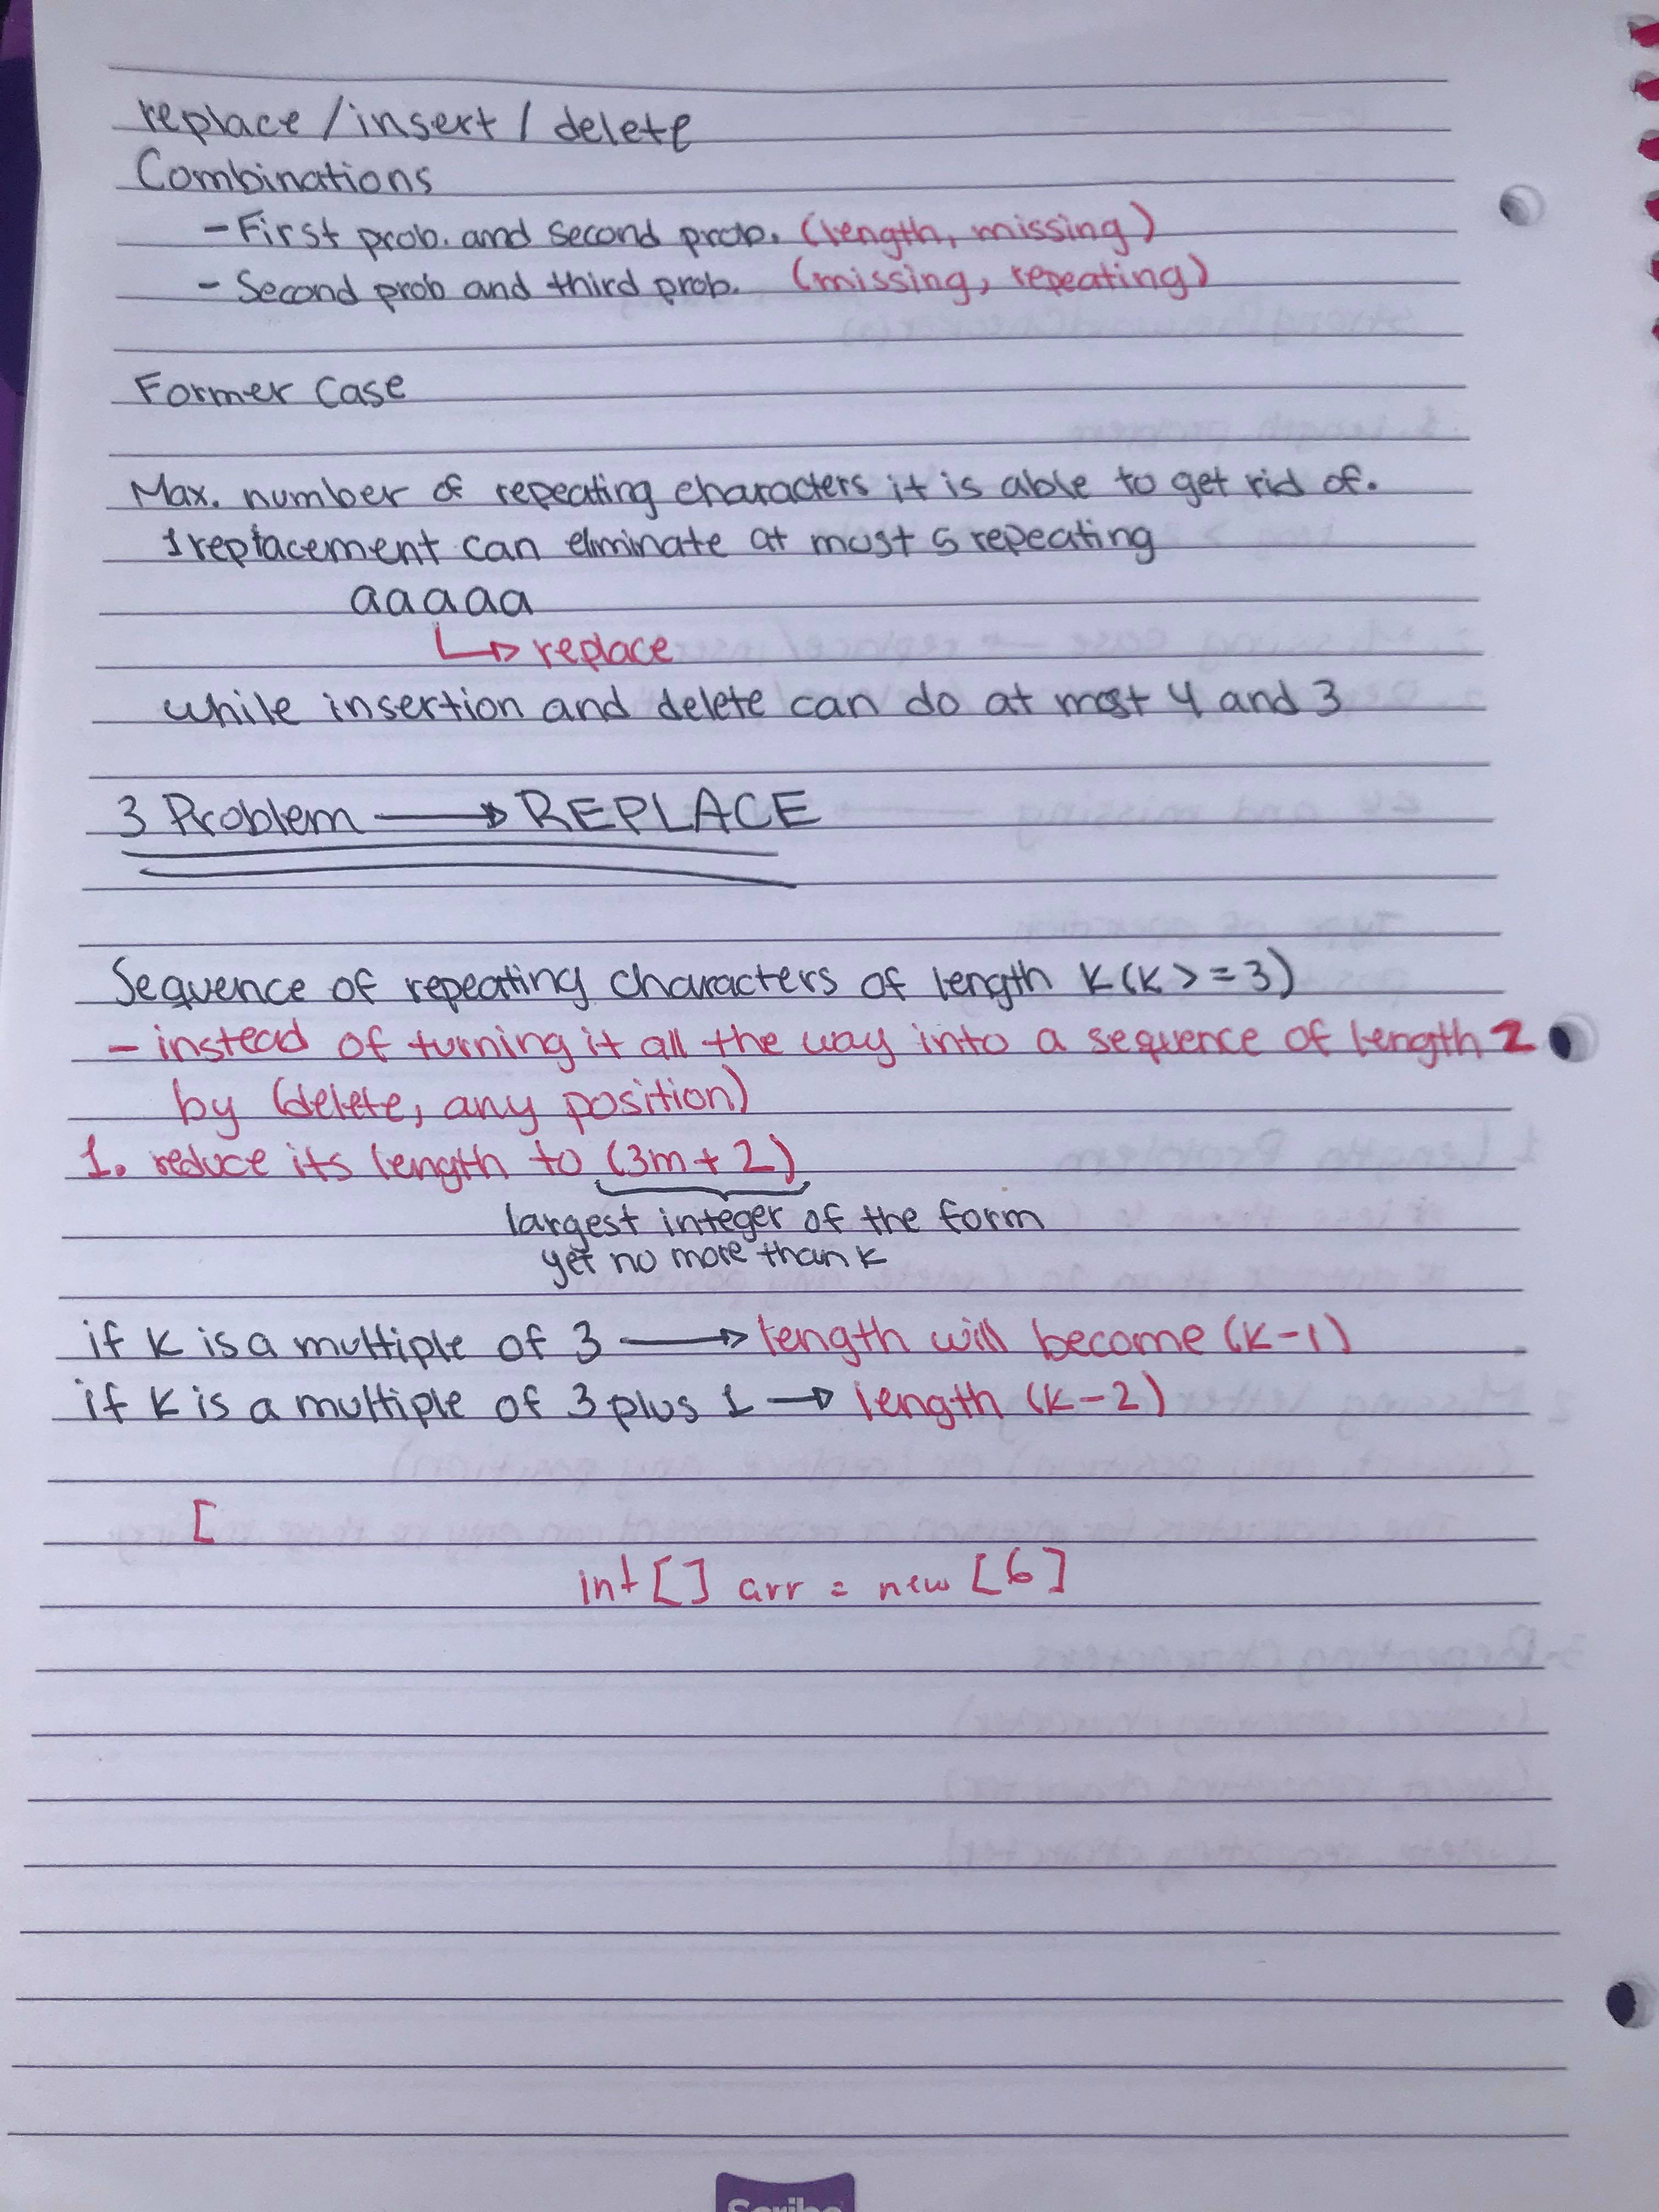 replace/insert/delete
Combinations
- First prob. and second prob. (length, missing)
- Second prob and third prob. (missing, repeating)
Former Case
Max. number of repeating characters it is able to get rid of.
1 replacement can eliminate at most 5 repeating
aaaaa
↳ replace
while insertion and delete can do at most 4 and 3
3 Problem → REPLACE
Sequence of repeating characters of length K (K >= 3)
- instead of turning it all the way into a sequence of length 2
by (delete, any position)
1. reduce its length to (3m + 2)
largest integer of the form
yet no more than K
if K is a multiple of 3 → length will become (K-1)
if K is a multiple of 3 plus 1 → length (K-2)
[
int [] arr = new [6]